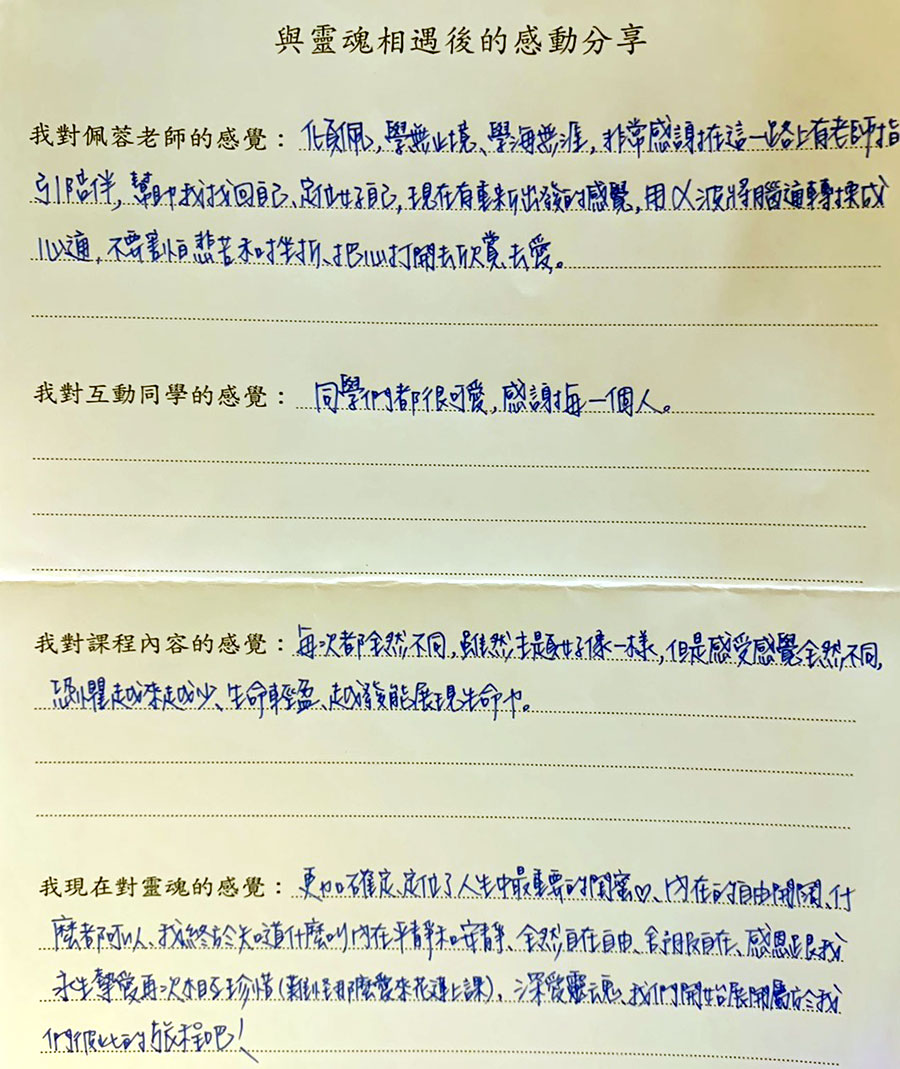 與靈魂相遇後的感動分享
我對佩蓉老師的感覺：傾佩，學無止境、學海無涯，非常感謝在這一路上有老師指
引陪伴，幫助我找回自己、定位好自己，現在有重新出發的感覺，用α波將腦適轉換成
心適，不要害怕悲苦和挫折、把心打開去欣賞去愛。
我對互動同學的感覺：同學們都很可愛，感謝每一個人。
我對課程內容的感覺：每次都全然不同，雖然主題好像一樣，但是感受感覺全然不同，
恐懼越來越少、生命輕盈、越發能展現生命力。
我現在對靈魂的感覺：更加確定、定位了人生中最重要的閨蜜♡、內在的自由開闊、什
麼都可以、我終於知道什麼叫內在平靜和安靜、全然自在自由、舒服自在、感恩跟我
永生摯愛再次相互珍惜(難怪那麼愛來花蓮上課)，深愛靈魂、我們開始展開屬於我
們彼此的旅程吧！